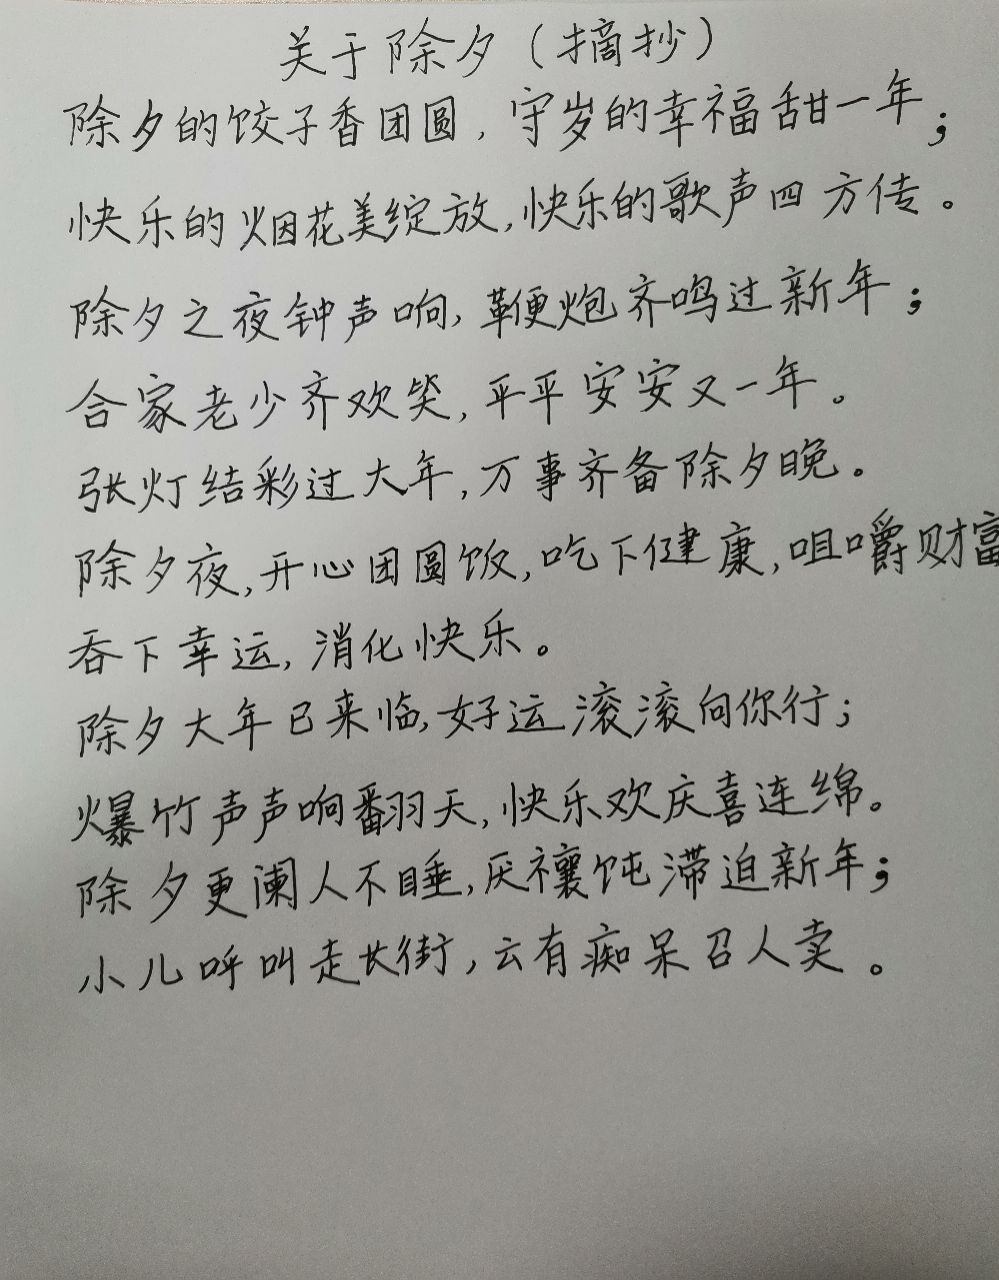 关于除夕（摘抄）
除夕的饺子香团圆，守岁的幸福甜一年；
快乐的烟花美绽放，快乐的歌声四方传。
除夕之夜钟声响，鞭炮齐鸣过新年；
合家老少齐欢笑，平平安安又一年。
张灯结彩过大年，万事齐备除夕晚。
除夕夜，开心团圆饭，吃下健康，咀嚼财富
吞下幸运，消化快乐。
除夕大年已来临，好运滚滚向你行；
爆竹声声响翻天，快乐欢庆喜连绵。
除夕更阑人不睡，厌禳钝滞迫新年；
小儿呼叫走长街，云有痴呆召人卖。